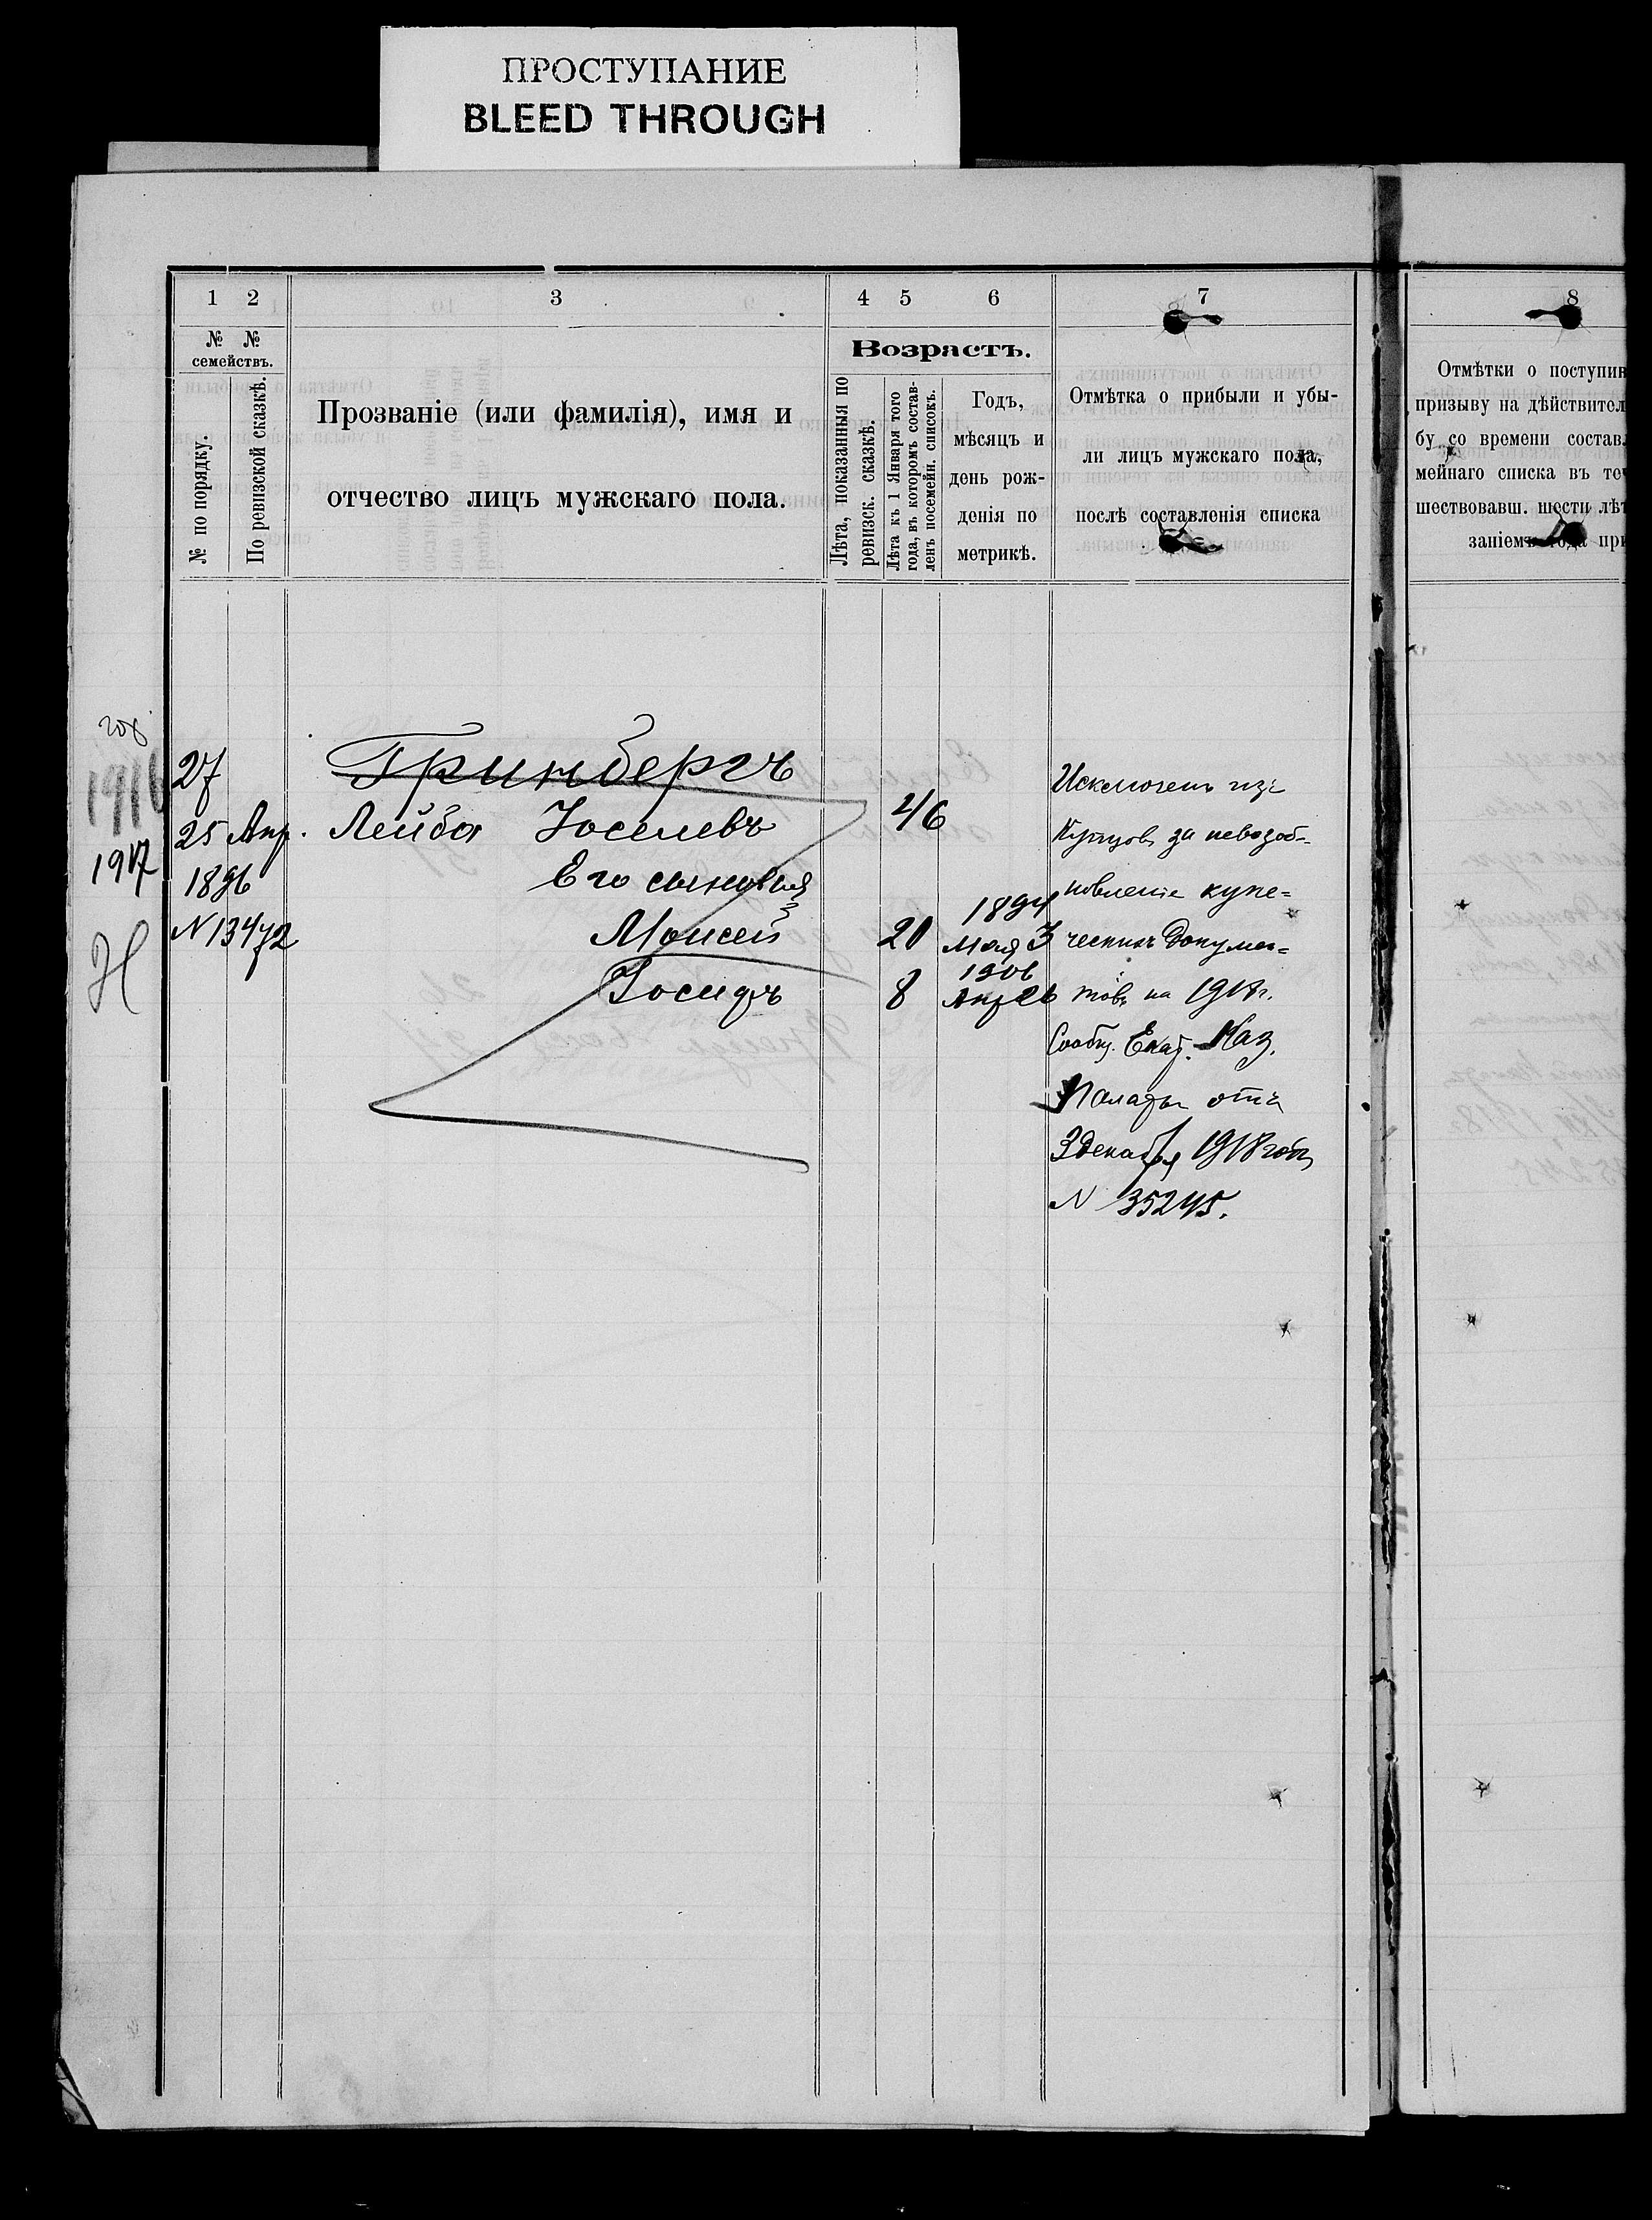 ПРОСТУПАНИЕ
BLEED THROUGH
1 2 3 4 5 6 7 8
№ №
семействъ.
№ по порядку.
По ревизской сказкѣ.
Прозваніе (или фамилія), имя и
отчество лицъ мужскаго пола.
Возрастъ.
Лѣта, показанныя по
ревизск. сказкѣ.
Лѣта къ 1 Января того
года, въ которомъ состав-
ленъ посемейн. списокъ.
Годъ,
мѣсяцъ и
день рож-
денія по
метрикѣ.
Отмѣтка о прибыли и убы-
ли лицъ мужскаго пола,
послѣ составленія списка
Отмѣтки о поступив
призыву на дѣйствител
бу со времени составл
мейнаго списка въ те
шествовавш. шести лѣт
заніемъ года при
1916
1917
27
25 Апр.
1896
N 13472
Гринбергъ
Лейба Іоселевъ 46
Его сыновья
Моисей 20 1894 Мая 3
Іосифъ 8 1906 Апр 26
Исключенъ изъ
Купцовъ за невозоб-
новленіе купе=
ческихъ докумен=
товъ на 1918 г.
Сообщ. Екат. Каз.
Палаты отъ
3 декабря 1918 года
N 35245.